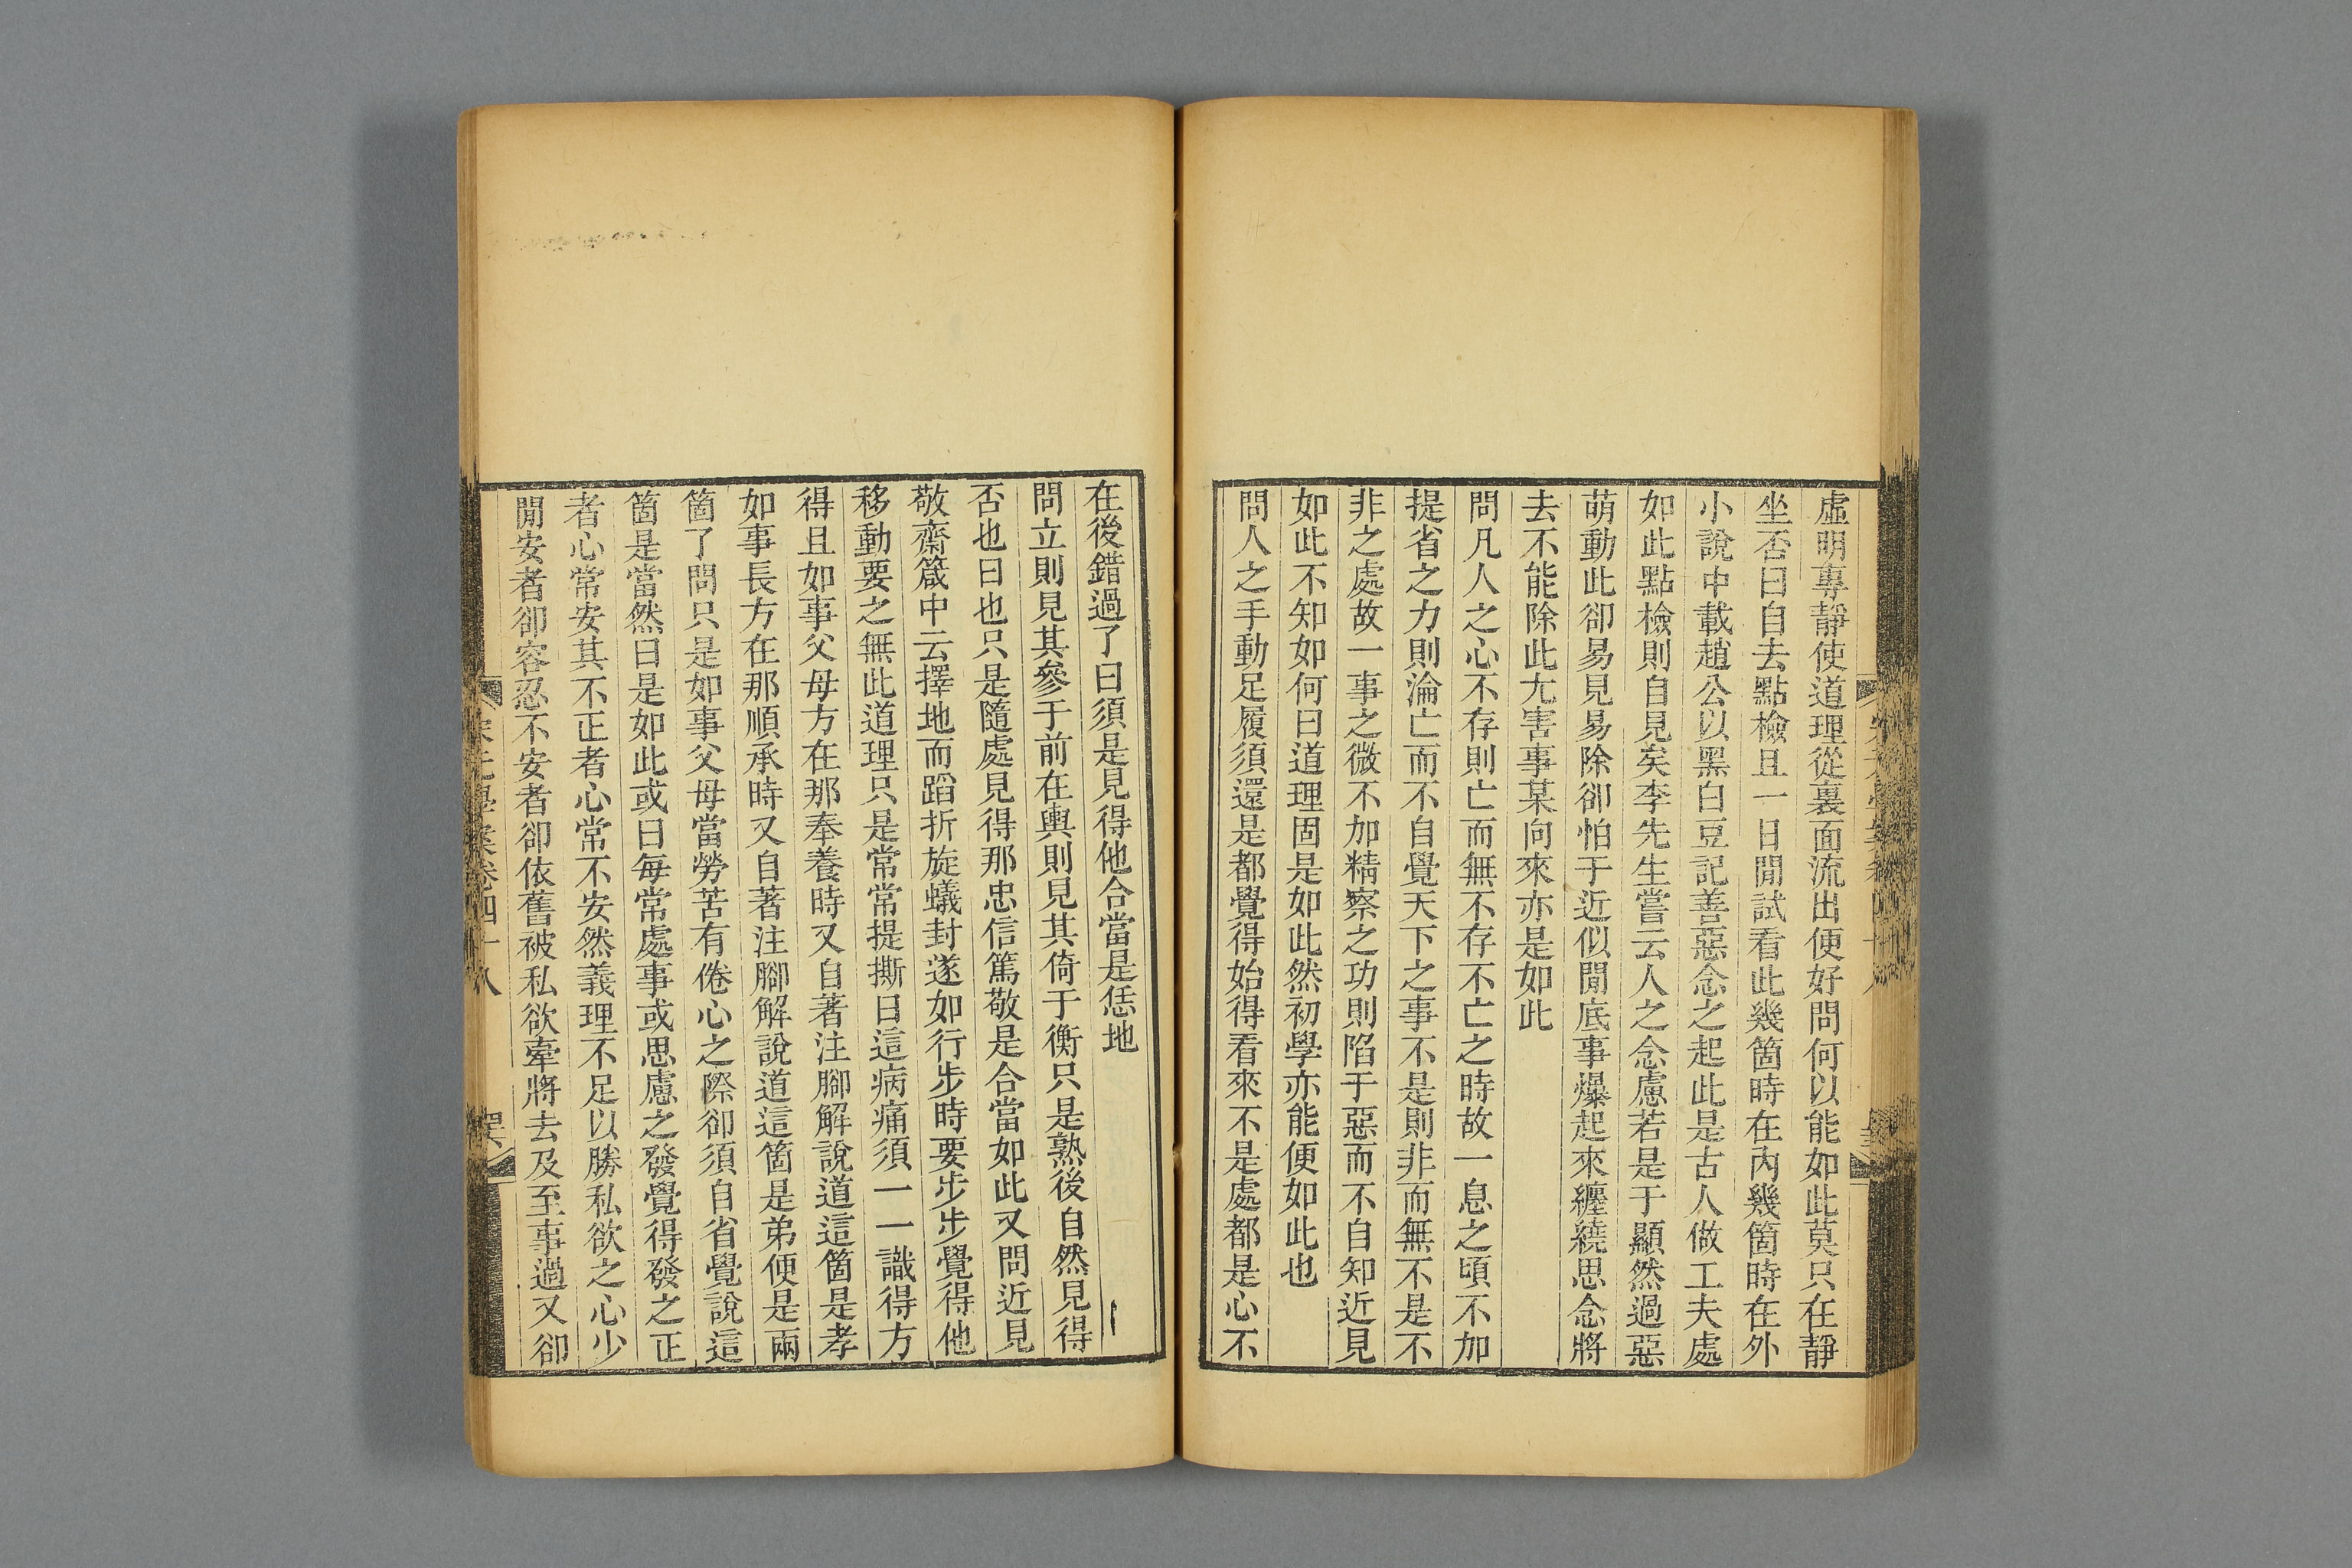 虛明專靜使道理從裏面流出便好問何以能如此莫只在靜
坐否曰自去點檢且一日閒試看此幾箇時在內幾箇時在外
小說中載趙公以黑白豆記善惡念之起此是古人做工夫處
如此點檢則自見矣李先生嘗云人之念慮若是于顯然過惡
萌動此卻易見易除卻怕于近似閒底事爆起來纏繞思念將
去不能除此尤害事某向來亦是如此
問凡人之心不存則亡而無不存不亡之時故一息之頃不加
提省之力則淪亡而不自覺天下之事不是則非而無不是不
非之處故一事之微不加精察之功則陷于惡而不自知近見
如此不知如何曰道理固是如此然初學亦能便如此也
問人之手動足履須還是都覺得始得看來不是處都是心不
在後錯過了曰須是見得他合當是恁地
問立則見其參于前在輿則見其倚于衡只是熟後自然見得
否也曰也只是隨處見得那忠信篤敬是合當如此又問近見
敬齋箴中云擇地而蹈折旋蟻封遂如行步時要步步覺得他
移動要之無此道理只是常常提撕曰這病痛須一一識得方
得且如事父母方在那奉養時又自著注腳解說道這箇是孝
如事長方在那順承時又自著注腳解說道這箇是弟便是兩
箇了問只是如事父母當勞苦有倦心之際卻須自省覺說這
箇是當然曰是如此或曰每常處事或思慮之發覺得發之正
者心常安其不正者心常不安然義理不足以勝私欲之心少
閒安者卻容忍不安者卻依舊被私欲牽將去及至事過又卻
宋元學案卷四十八